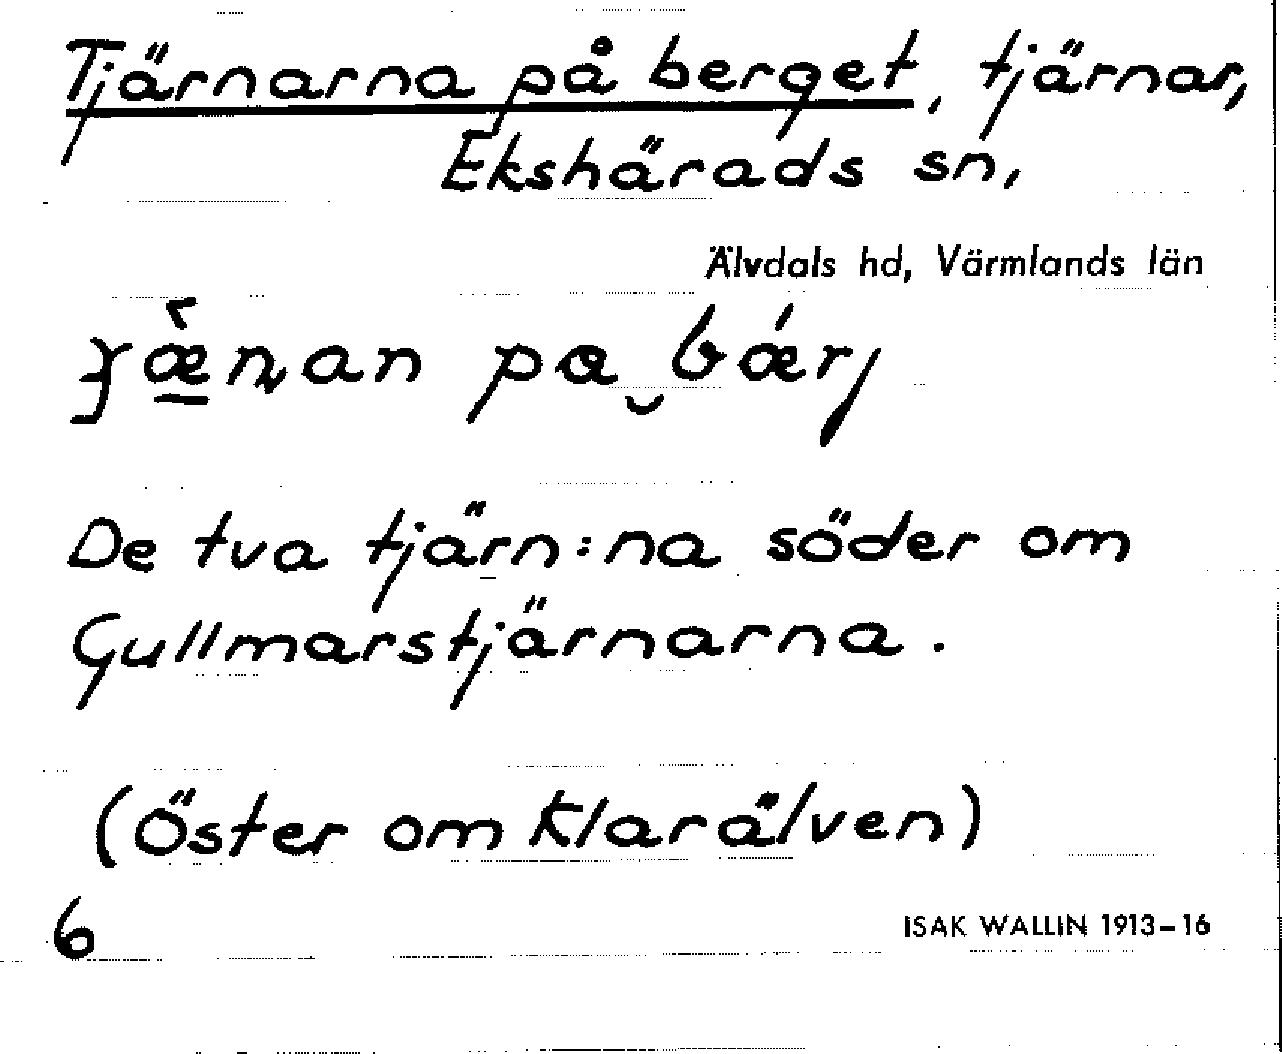 Tjärnarna på berget, tjärnar,
Ekshärads sn,
Älvdals hd, Värmlands län
De tva tjärn:na söder om
Gullmarstjärnarna.
(Öster om Klarälven)
6
ISAK WALLIN 1913–16